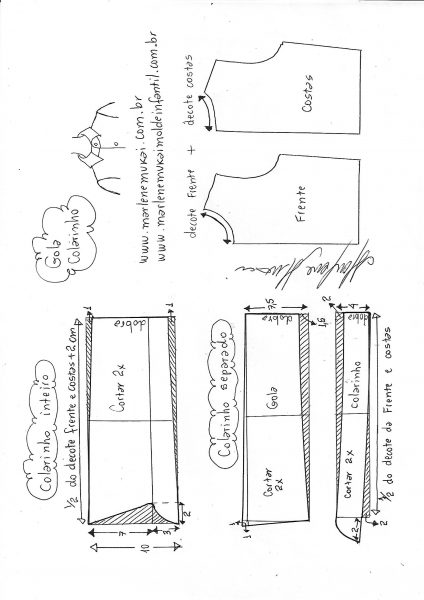 Gola
Colarinho
www.marlenemukai.com.br
www.marlenemukaimoldeinfantil.com.br
decote frente + decote costas
Costas
Frente
Colarinho inteiro
1/2 do decote frente e costas + 2cm
1
1
dobra
Cortar 2x
7
3
10
2
Colarinho separado
7,5
dobra
1,6
Gola
Cortar
2x
1
1
2
4
dobra
Colarinho
Cortar 2x
2
2
1/2 do decote da Frente e costas